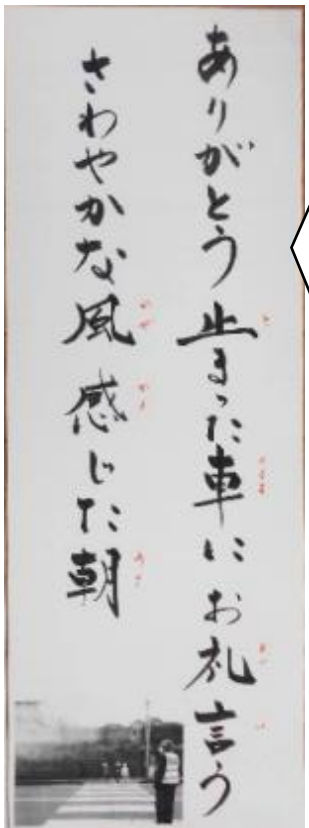 ありがとう 止まった車にお礼言う
さわやかな風 感じた朝